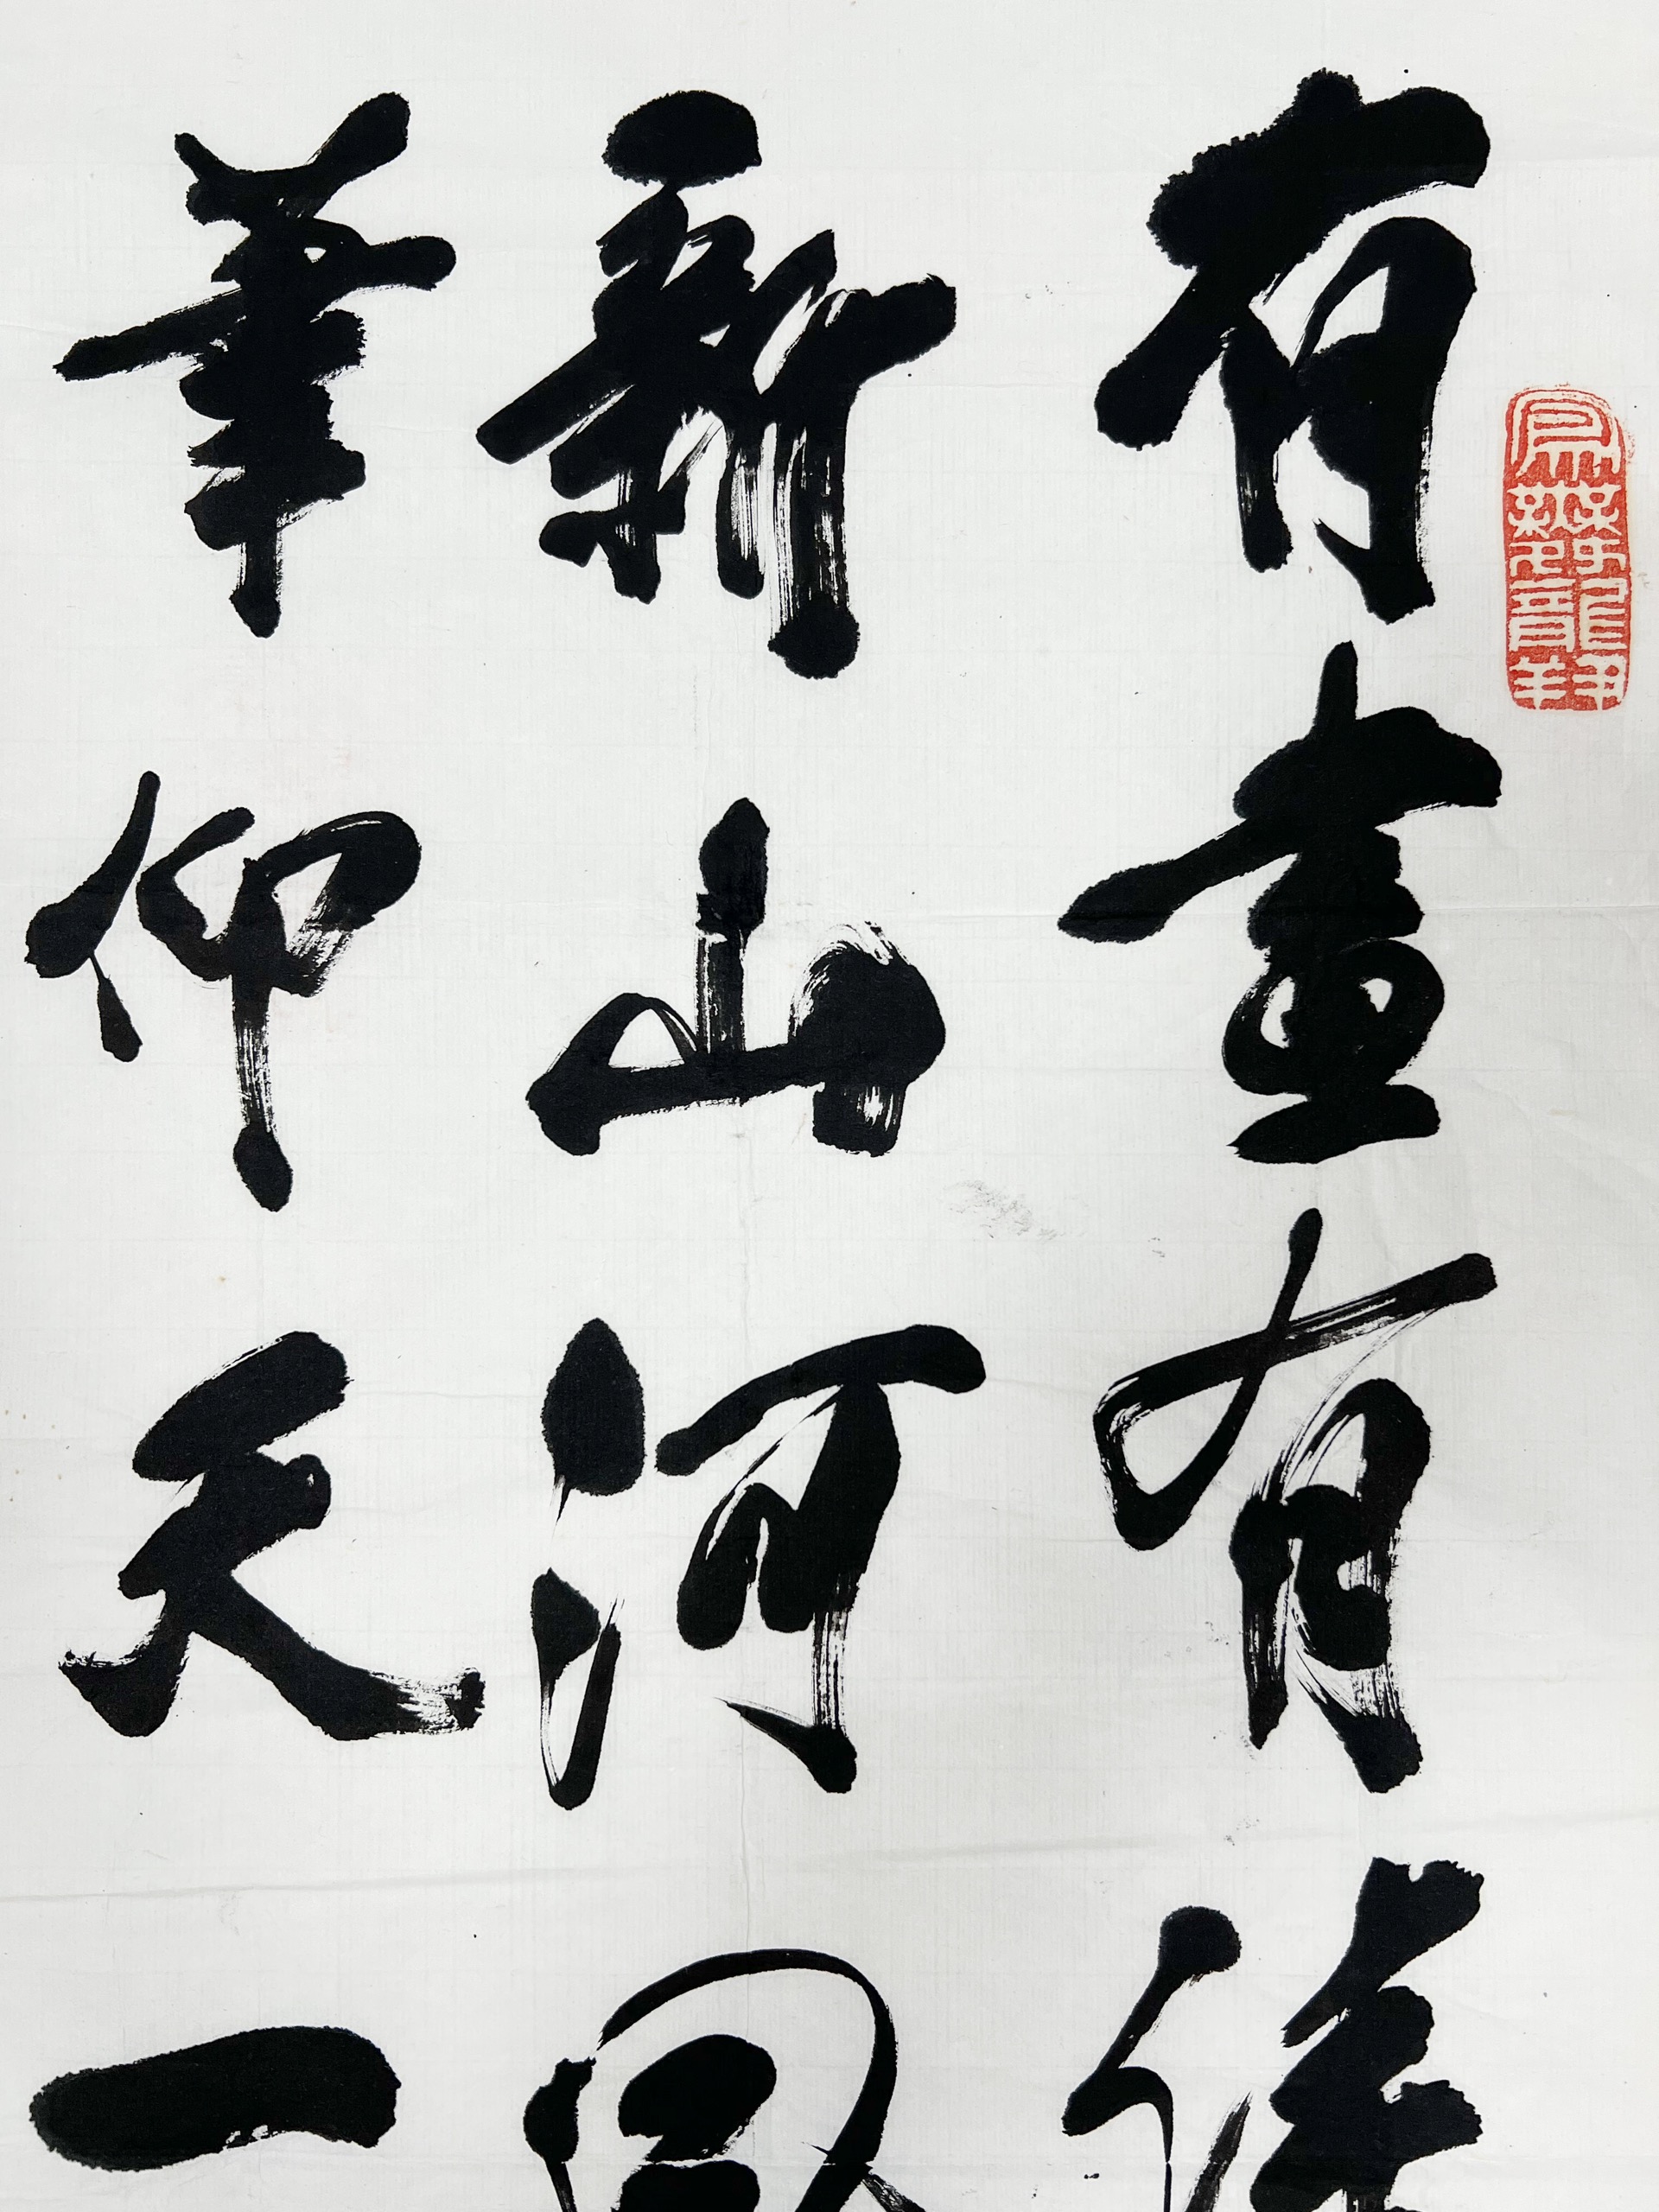 有畫有
新山河
筆仰天一